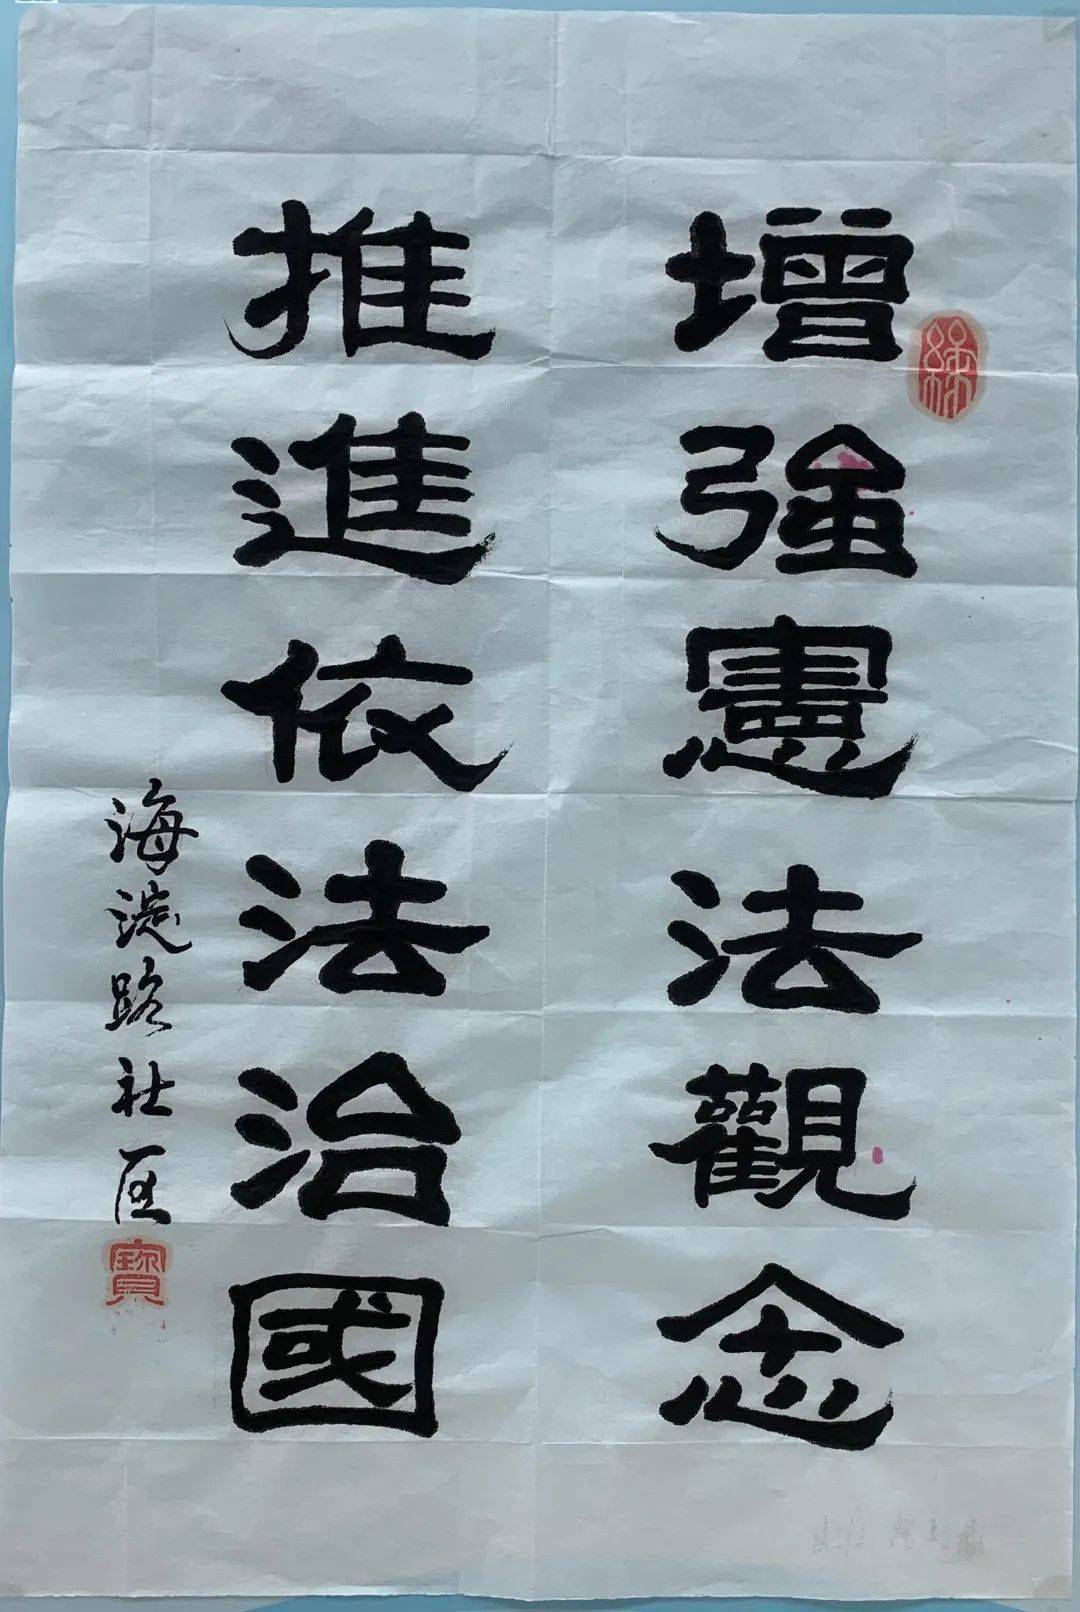 增強憲法觀念
推進依法治國
海漄路社区
寶